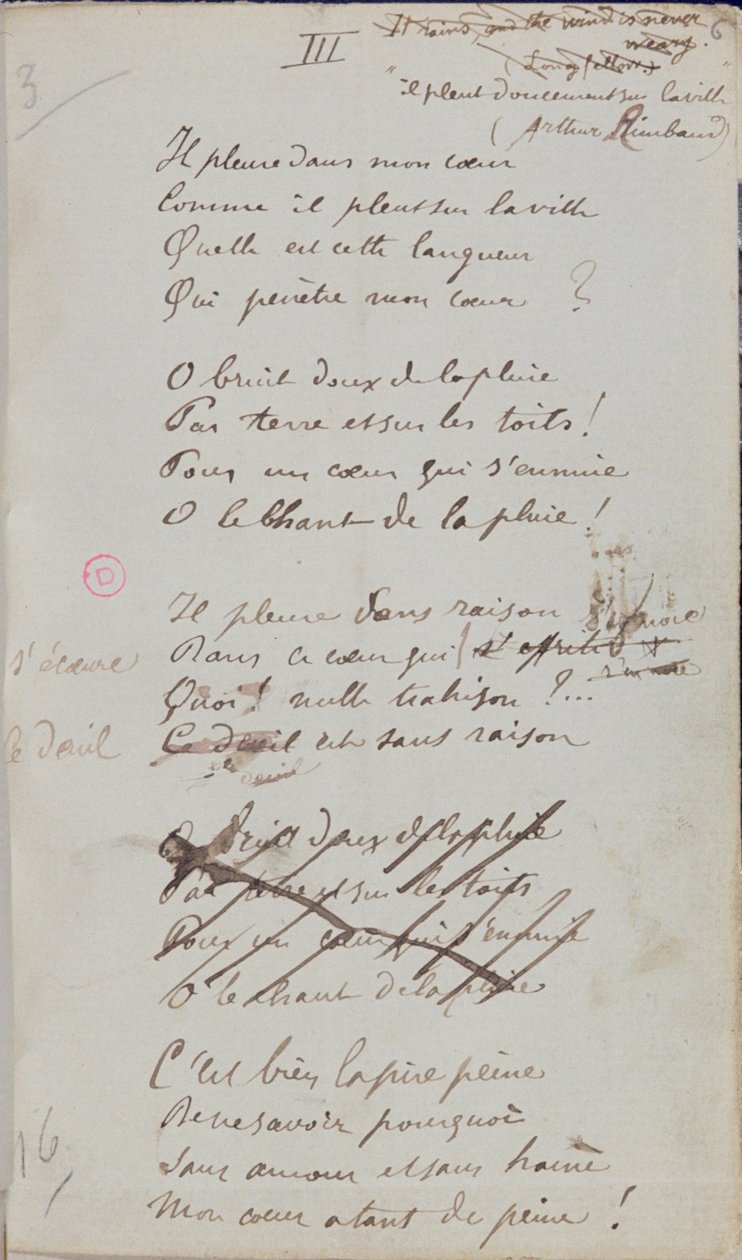 III
It rains, and the wind is never
weary.
(Longfellow.)
"il pleut doucement sur la ville"
(Arthur Rimbaud)
6
3
Il pleure dans mon cœur
Comme il pleut sur la ville
Quelle est cette langueur
Qui pénètre mon cœur ?
O bruit doux de la pluie
Par terre et sur les toits !
Pour un cœur qui s'ennuie
O le Chant de la pluie !
D
Il pleure sans raison
s'ignore
Dans ce cœur qui
s'écœure
Quoi ! nulle trahison ?...
Ce deuil est sans raison
Ce deuil
deuil
O bruit doux de la pluie
Par terre et sur les toits
Pour un cœur qui s'ennuie
O le chant de la pluie
C'est bien la pire peine
De ne savoir pourquoi
Sans amour et sans haine
Mon cœur a tant de peine !
16